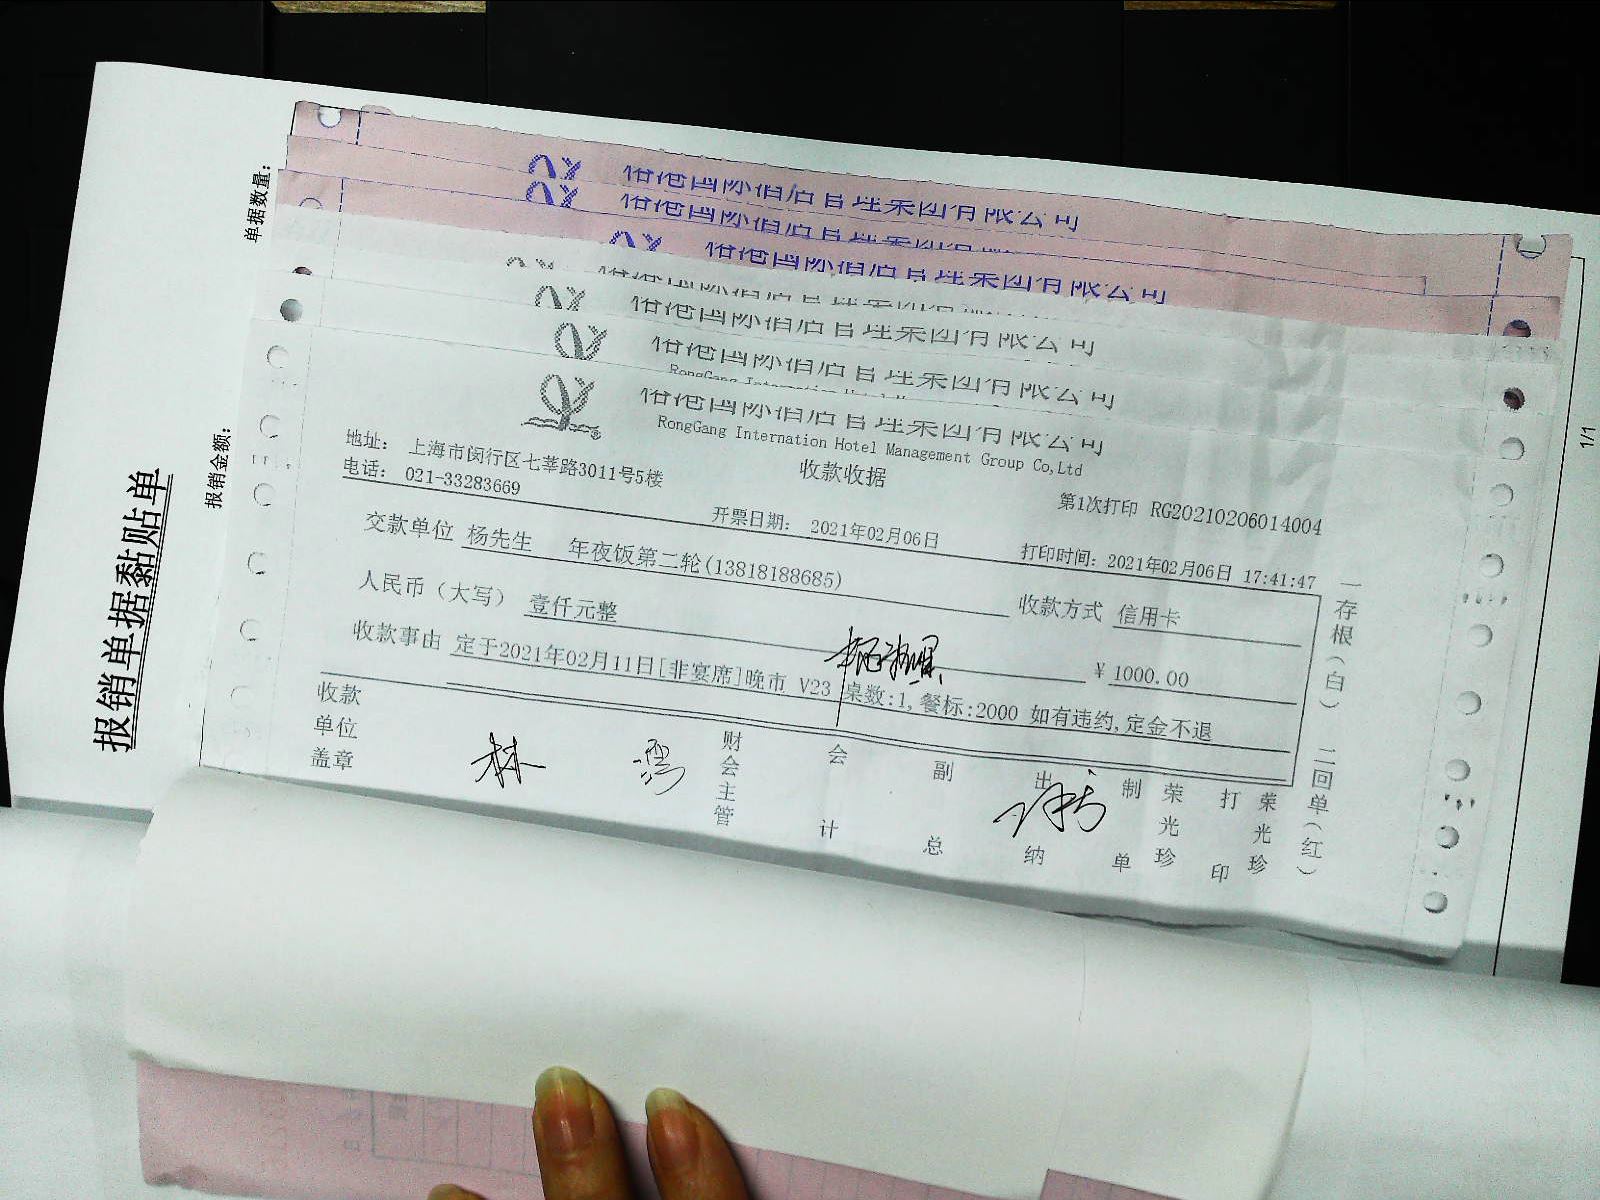 报销单据黏贴单
单据数量:
报销金额:
1/1
裕港国际酒店管理集团有限公司
裕港国际酒店管理集团有限公司
裕港国际酒店管理集团有限公司
裕港国际酒店管理集团有限公司
裕港国际酒店管理集团有限公司
裕港国际酒店管理集团有限公司
RongGang Internation
裕港国际酒店管理集团有限公司
RongGang Internation Hotel Management Group Co,Ltd
地址: 上海市闵行区七莘路3011号5楼
收款收据
电话: 021-33283669
第1次打印 RG20210206014004
开票日期: 2021年02月06日
打印时间: 2021年02月06日 17:41:47
交款单位 杨先生 年夜饭第二轮(13818188685)
收款方式 信用卡
人民币（大写） 壹仟元整
¥ 1000.00
收款事由 定于2021年02月11日[非宴席]晚市 V23 桌数:1,餐标:2000 如有违约,定金不退
收款单位盖章
林
财会主管
会计
副总
出纳
制单
荣光珍
打印
荣光珍
一存根(白) 二回单(红)